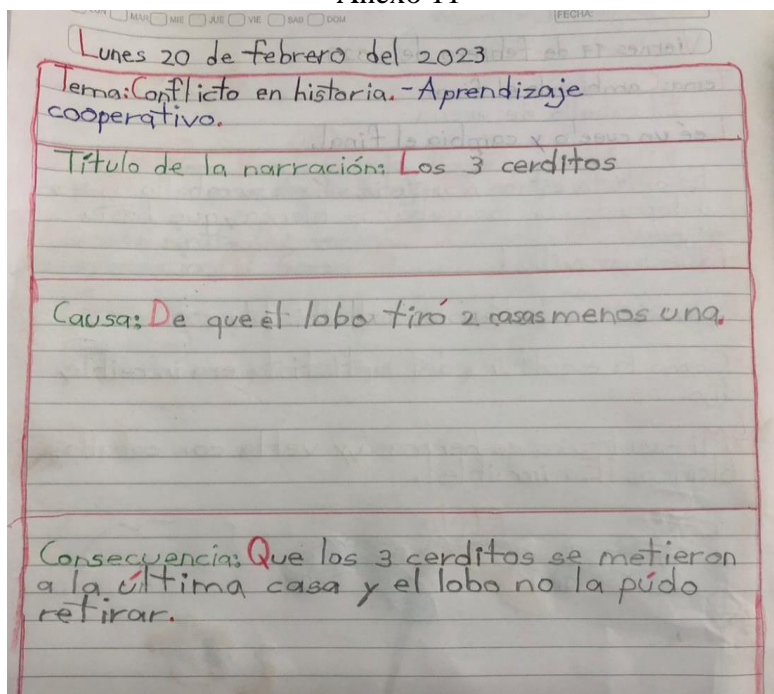 Anexo 11
MAR MIE JUE VIE SAB DOM
FECHA:
Lunes 20 de febrero del 2023
Tema: Conflicto en historia. - Aprendizaje
cooperativo.
Título de la narración: Los 3 cerditos
Causa: De que él lobo tiró 2 casas menos una.
Consecuencia: Que los 3 cerditos se metieron
a la última casa y el lobo no la púdo
retirar.